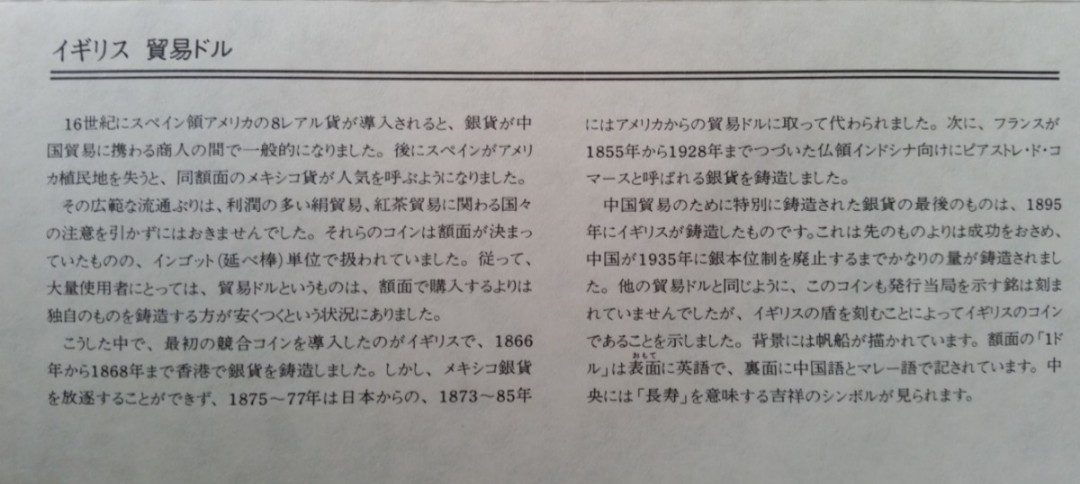 イギリス 貿易ドル
16世紀にスペイン領アメリカの8レアル貨が導入されると、銀貨が中
国貿易に携わる商人の間で一般的になりました。後にスペインがアメリ
カ植民地を失うと、同額面のメキシコ貨が人気を呼ぶようになりました。
その広範な流通ぶりは、利潤の多い絹貿易、紅茶貿易に関わる国々
の注意を引かずにはおきませんでした。それらのコインは額面が決まっ
ていたものの、インゴット(延べ棒)単位で扱われていました。従って、
大量使用者にとっては、貿易ドルというものは、額面で購入するよりは
独自のものを鋳造する方が安くつくという状況にありました。
こうした中で、最初の競合コインを導入したのがイギリスで、1866
年から1868年まで香港で銀貨を鋳造しました。しかし、メキシコ銀貨
を放逐することができず、1875〜77年は日本からの、1873〜85年
にはアメリカからの貿易ドルに取って代わられました。次に、フランスが
1855年から1928年までつづいた仏領インドシナ向けにピアストレ・ド・コ
マースと呼ばれる銀貨を鋳造しました。
中国貿易のために特別に鋳造された銀貨の最後のものは、1895
年にイギリスが鋳造したものです。これは先のものよりは成功をおさめ、
中国が1935年に銀本位制を廃止するまでかなりの量が鋳造されまし
た。他の貿易ドルと同じように、このコインも発行当局を示す銘は刻ま
れていませんでしたが、イギリスの盾を刻むことによってイギリスのコイン
であることを示しました。背景には帆船が描かれています。額面の「1ド
おもて
ル」は表面に英語で、裏面に中国語とマレー語で記されています。中
央には「長寿」を意味する吉祥のシンボルが見られます。